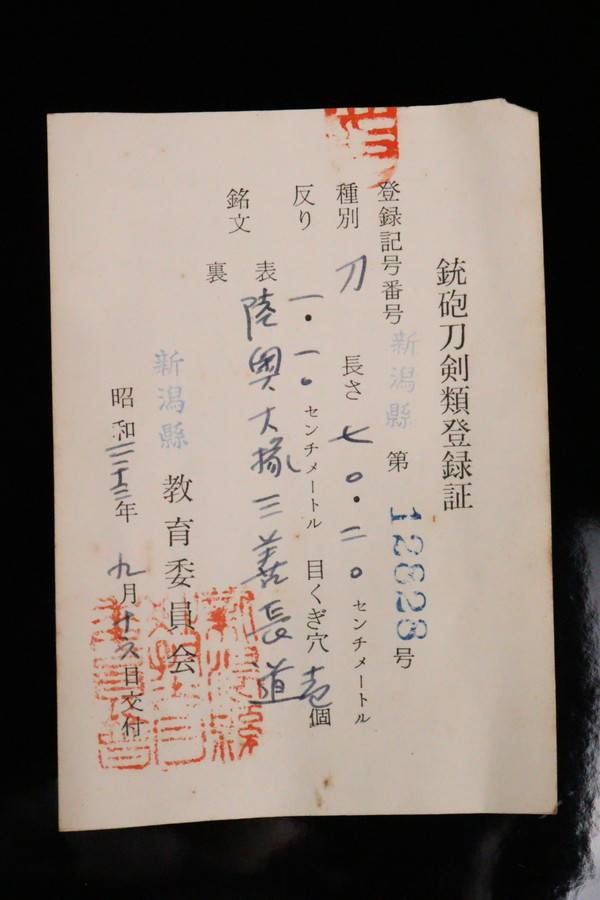 銃砲刀剣類登録証
登録記号番号 新潟縣 第 12828 号
種別 刀 長さ 七〇・二〇 センチメートル
反り 一・一〇 センチメートル 目くぎ穴 壱個
銘文 表 陸奥大掾三善長道
裏
新潟縣 教育委員会
昭和 年 九月十六日交付